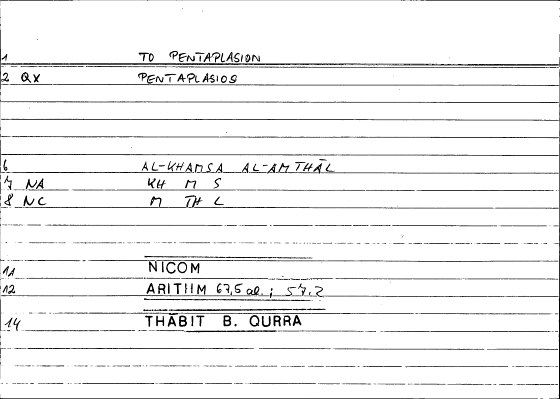 1 TO PENTAPLASION
2 QX PENTAPLASIOS
6 AL-KHAMSA AL-AMTHĀL
7 NA KH M S
8 NC M TH L
11 NICOM
12 ARITHM 67,5 al.; 57.2
14 THĀBIT B. QURRA